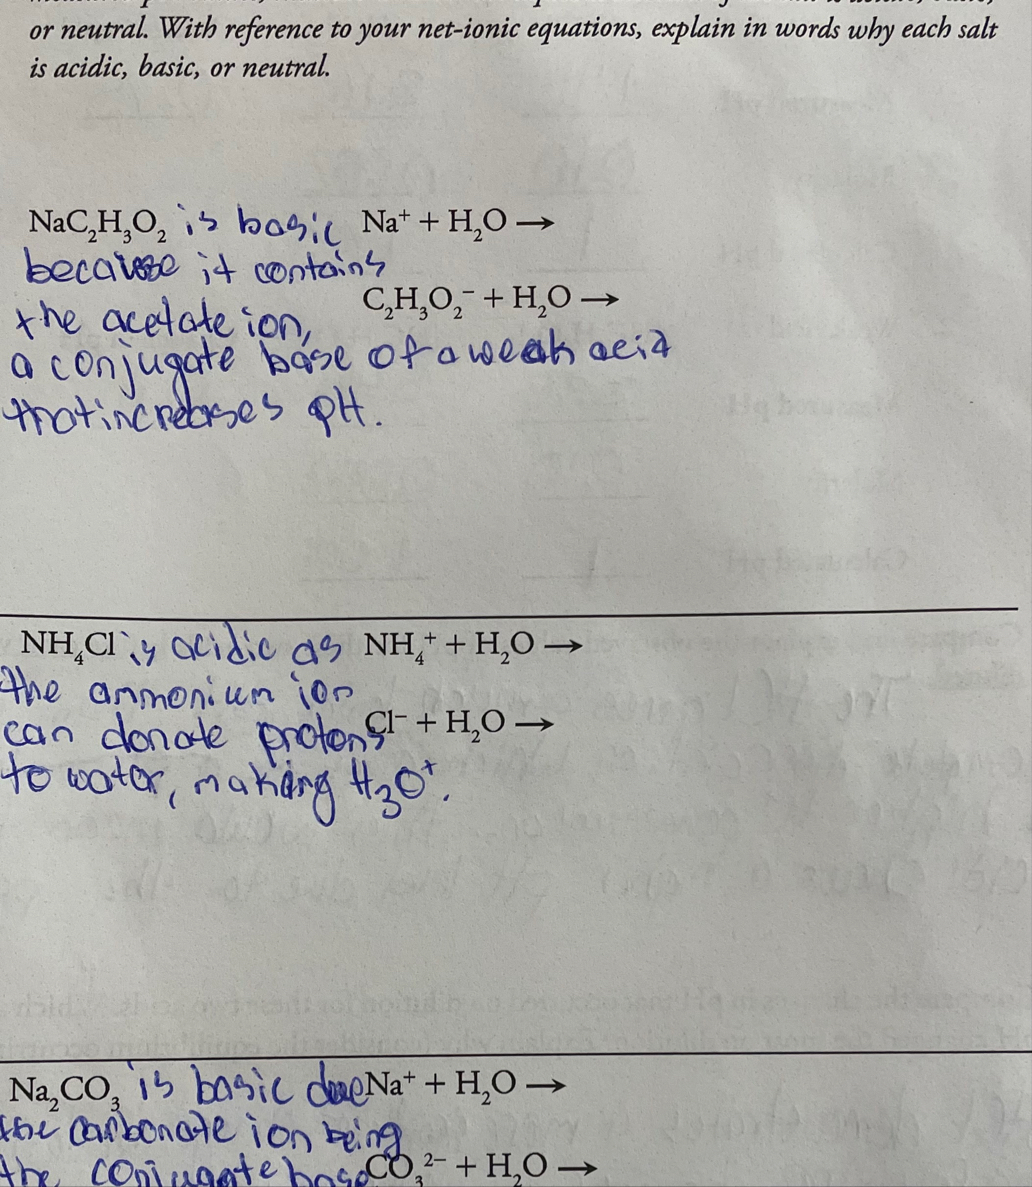 or neutral. With reference to your net-ionic equations, explain in words why each salt
is acidic, basic, or neutral.
NaC₂H₃O₂ is basic Na⁺ + H₂O →
because it contains
the acetate ion, C₂H₃O₂⁻ + H₂O →
a conjugate base of a weak acid
that increases pH.
NH₄Cl is acidic as NH₄⁺ + H₂O →
the ammonium ion
can donate protons Cl⁻ + H₂O →
to water, making H₃O⁺.
Na₂CO₃ is basic due Na⁺ + H₂O →
the carbonate ion being
the conjugate base CO₃²⁻ + H₂O →